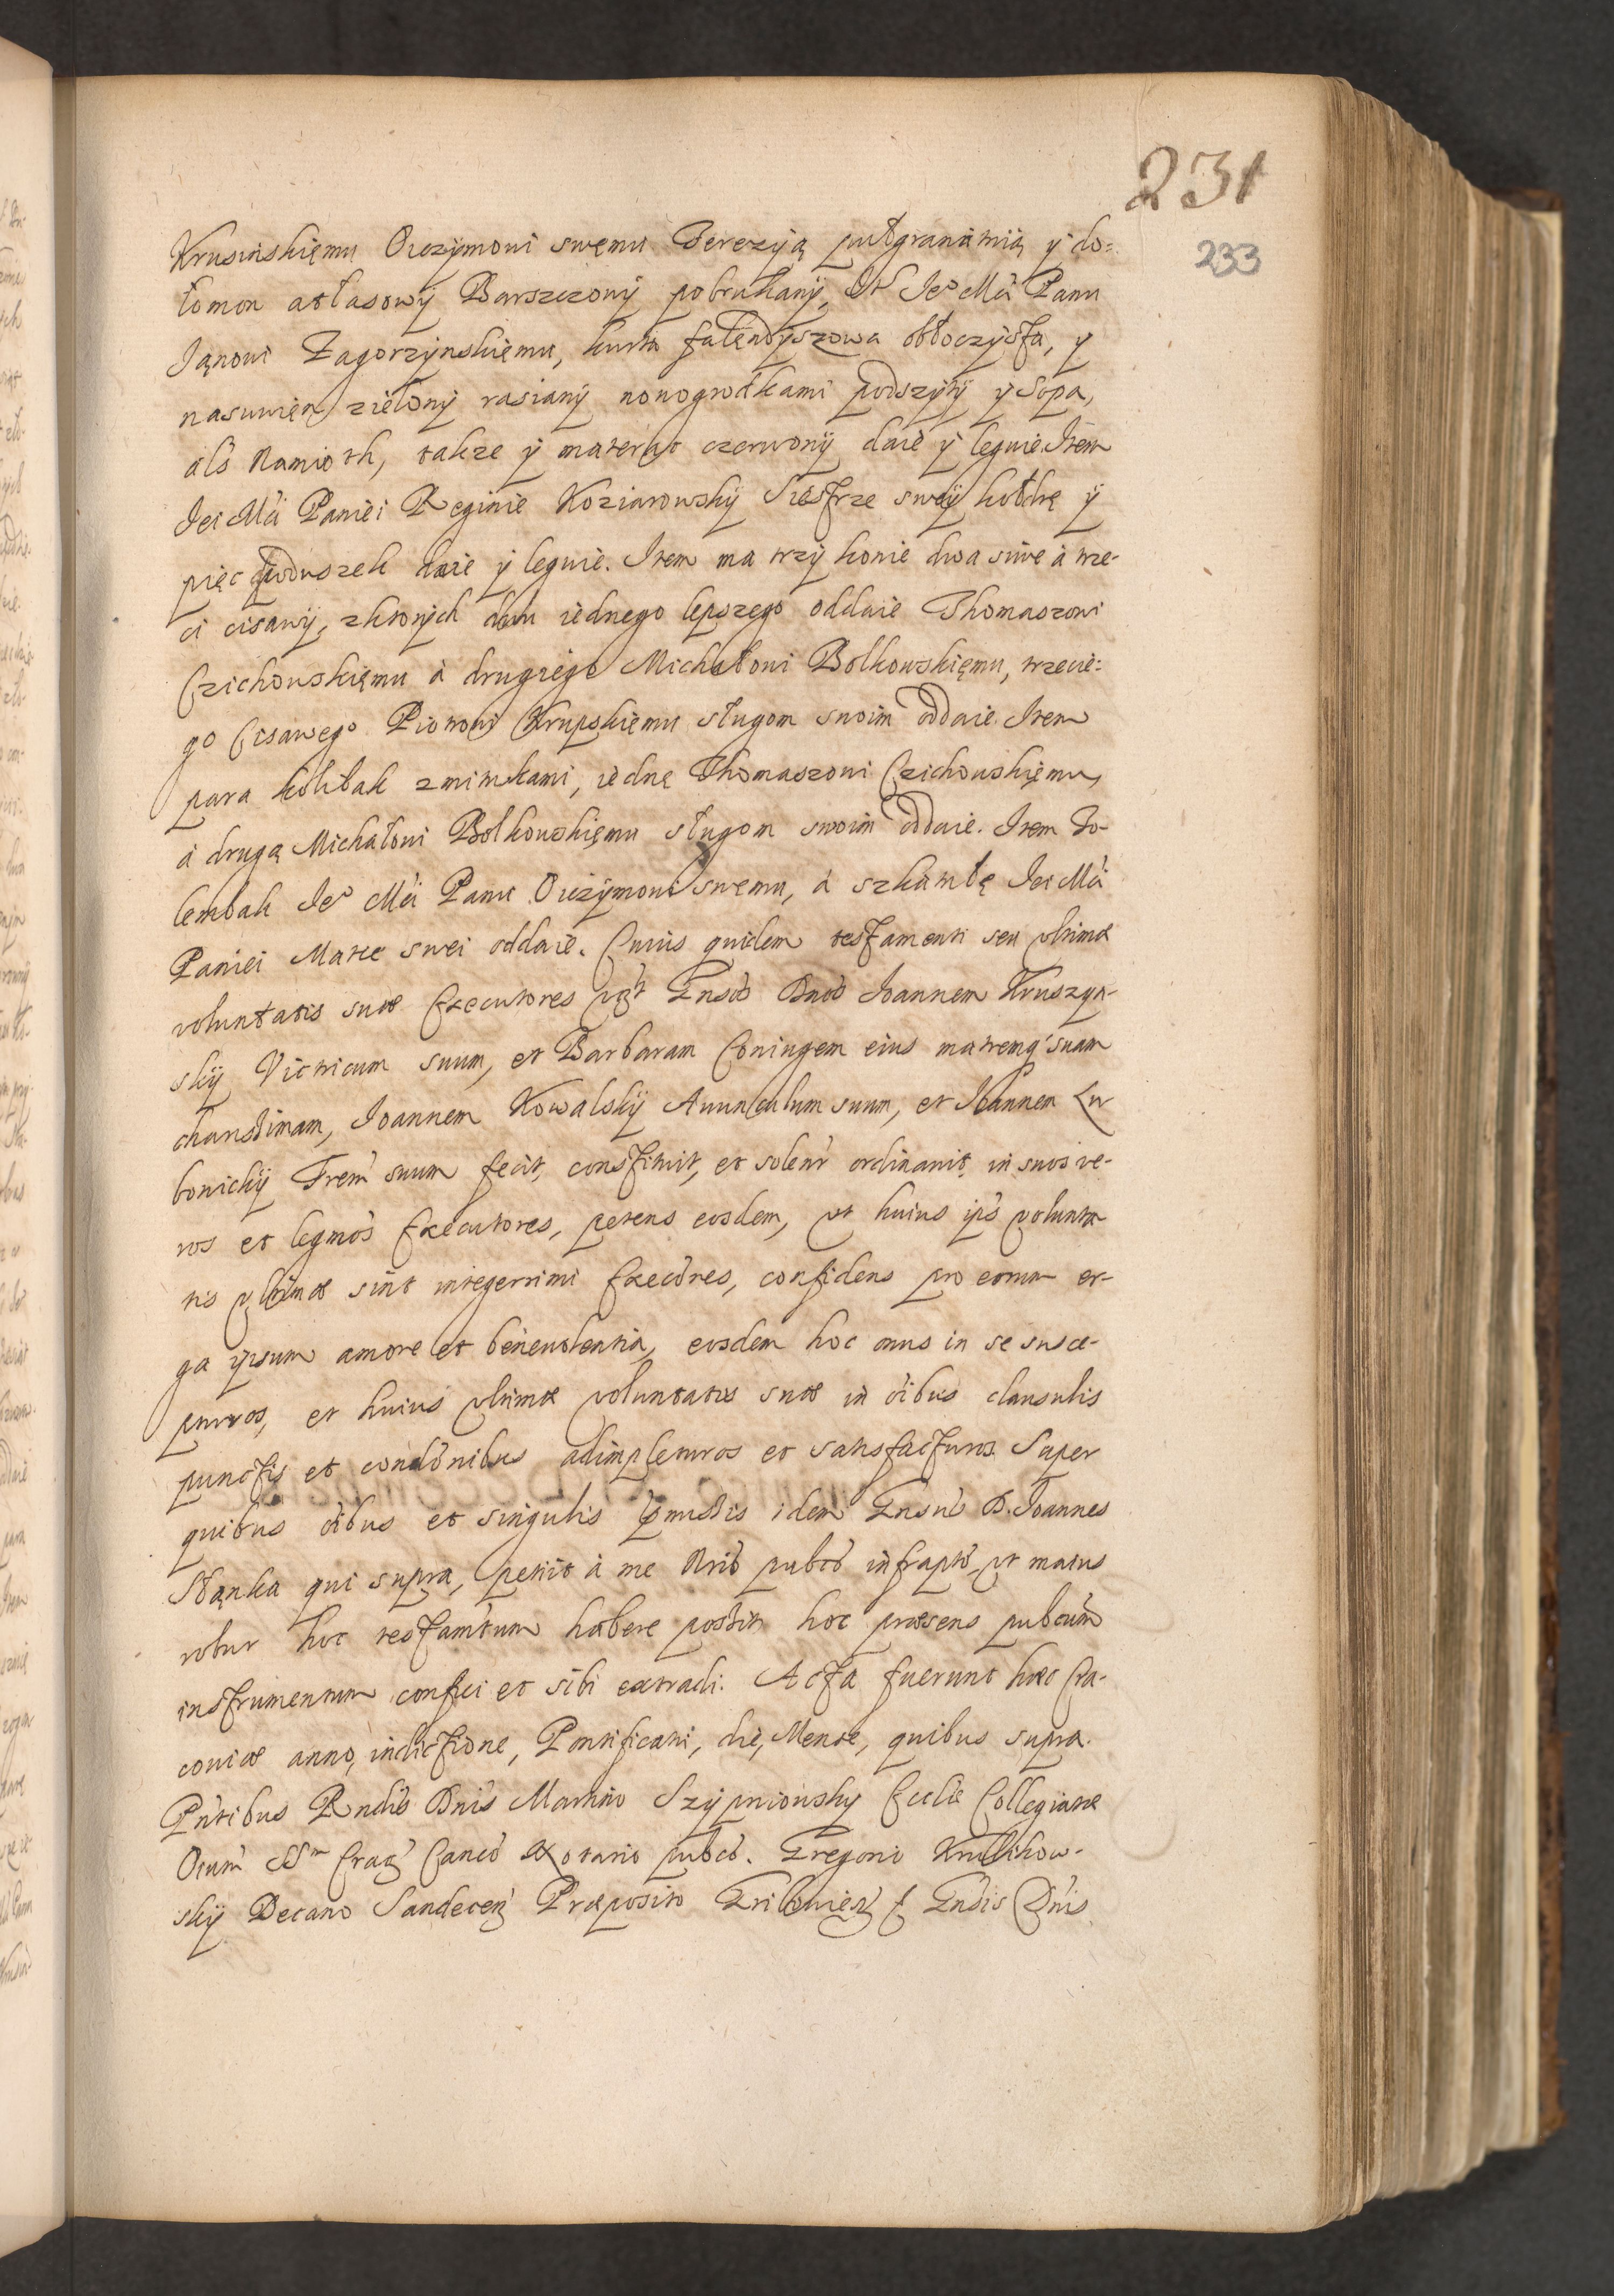 231
233
Krusinskięmu Oiczymoui swęmu Ferezyą pułgranamią y do=
łomon atłasowy Barszczowy pobrukany, It Jeº Mći Panu
Jąnowi Zagorzynskięmu, kurta falendyszowa obłoczysta, y
nasuwięn zielony rasiany nonogrodkami podszyty y Sopa,
als Namioth, takze y materac czerwony daie y leguie. Item
Jei Mći Paniei Reginie Koziarowsky Siestrze swey kołdrę y
pięc poduszek daie y leguie. Item ma trzy konie dwa siwe à trze-
ci cisawy, zktorych dwu iednego lepszego oddaie Thomaszowi
Czichowskięmu à drugiego Michałowi Bolkowskięmu, trzecie=
go Cisawego Piotrowi Krupskięmu sługom swoim oddaie. Item
para kolibak zmiwkami, iednę Thomaszowi Czichowskięmu,
à drugą Michałowi Bolkowskięmu sługom swoim oddaie. Item To-
lembak Jeº Mći Panu Oiczymowi swęmu, à szkatułę Jei Mći
Paniei Matce swei oddaie. Cuius quidem testamenti seu vltimæ
voluntatis suæ Executores vꝫt Gnsos Dnos Joannem Kruszyn-
sky Vitricum suum, et Barbaram Coniugem eius matremq suam
charissimam, Joannem Kowalsky Auunculum suum, et Joannem Lu
bowicky Frem suum fecit, constituit, et solenr ordinauit, in suos ve-
ros et legmos Executores, petens eosdem, vt huius ips volunta
tis vltimæ sint integerrimi Execōres, confidens pro eorum er-
ga ipsum amore et beneuolentia, eosdem hoc onus in se susce-
pturos, et huius vltimæ voluntatis suæ in oibus clausulis
punctis et condōnibus adimpleturos et satisfacturos. Super
quibus oibus et singulis pmissis idem Gnsus D. Joannes
Stąnka qui supra, petiit à me Nrio pubco infrapto, vt maius
robur hoc testamtum habere possit hoc præsens pubcum
instrumentum confici et sibi extradi. Acta fuerunt hæc Cra-
couiæ anno, indictione, Pontificatu, die, Mense, quibus supra.
Pntibus Rndis Dnis Martino Szypniowsky Ecclie Collegiatæ
Oium SSm Cracꝫ Canco Notario pubco. Gregorio Krulikow-
sky Decano Sandecenꝫ Præposito Gribouienꝫ & Gnsis Dnis